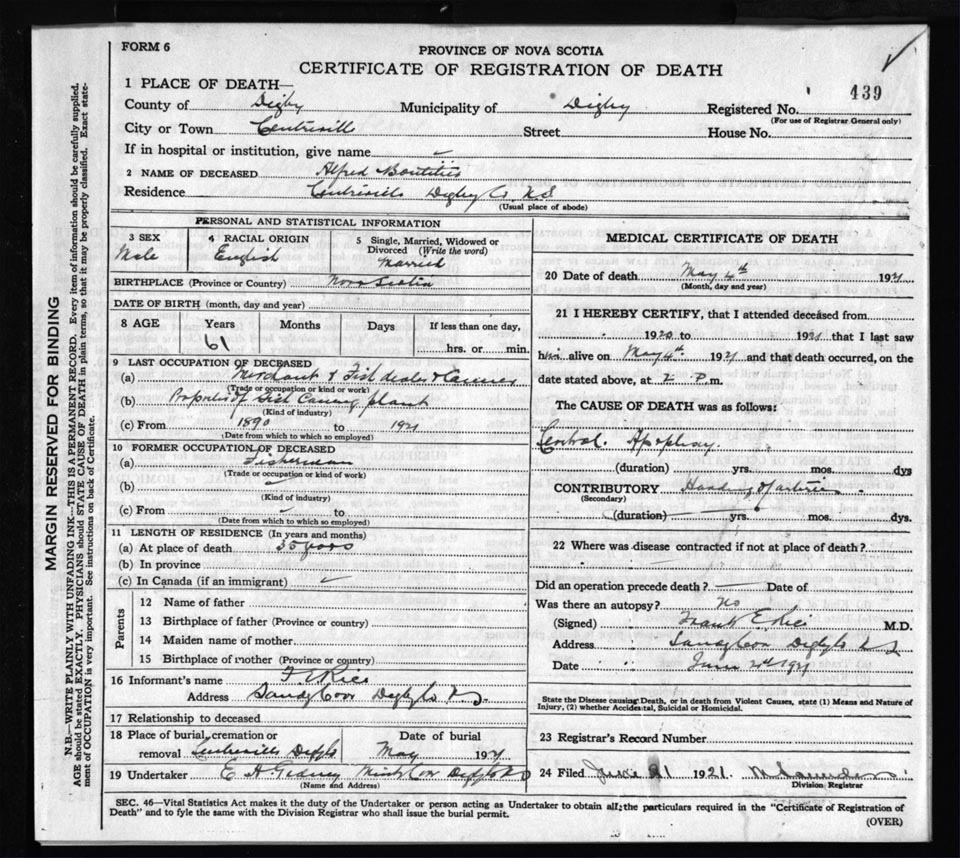 FORM 6
PROVINCE OF NOVA SCOTIA
CERTIFICATE OF REGISTRATION OF DEATH
439
1 PLACE OF DEATH—
County of Digby Municipality of Digby Registered No.
(For use of Registrar General only)
City or Town Centreville Street House No.
If in hospital or institution, give name —
2 NAME OF DECEASED Alfred
Residence Centreville Digby Co. N.S
(Usual place of abode)
MARGIN RESERVED FOR BINDING
N.B.—WRITE PLAINLY WITH UNFADING INK—THIS IS A PERMANENT RECORD. Every item of information should be carefully supplied.
AGE should be stated EXACTLY. PHYSICIANS should STATE CAUSE OF DEATH in plain terms, so that it may be properly classified. Exact state-
ment of OCCUPATION is very important. See instructions on back of Certificate.
PERSONAL AND STATISTICAL INFORMATION
3 SEX 4 RACIAL ORIGIN 5 Single, Married, Widowed or
Divorced (Write the word)
Male English Married
BIRTHPLACE (Province or Country) Nova Scotia
DATE OF BIRTH (month, day and year)
8 AGE Years Months Days If less than one day,
61 hrs. or min.
9 LAST OCCUPATION OF DECEASED
(a) Merchant & Fish dealer & Canner
(Trade or occupation or kind or work)
(b) Proprietor of Fish Canning plant
(Kind of industry)
(c) From 1890 to 1921
(Date from which to which so employed)
10 FORMER OCCUPATION OF DECEASED
(a) Fisherman
(Trade or occupation or kind of work)
(b) —
(Kind of industry)
(c) From — to
(Date from which to which so employed)
11 LENGTH OF RESIDENCE (In years and months)
(a) At place of death 35 years
(b) In province
(c) In Canada (if an immigrant)
Parents
12 Name of father
13 Birthplace of father (Province or country)
14 Maiden name of mother
15 Birthplace of mother (Province or country)
16 Informant's name F E Rice
Address Sandy Cove Digby Co N.S
17 Relationship to deceased
18 Place of burial, cremation or Date of burial
removal Centreville Digby Co May 1921
19 Undertaker E H Gidney Mink Cove Digby Co N S
(Name and Address)
MEDICAL CERTIFICATE OF DEATH
20 Date of death May 4th 1921
(Month, day and year)
21 I HEREBY CERTIFY, that I attended deceased from
1920 to 1921 that I last saw
him alive on May 4th 1921 and that death occurred, on the
date stated above, at 2 P.m.
The CAUSE OF DEATH was as follows:
Apoplexy.
(duration) yrs. mos. dys
CONTRIBUTORY Hardening of arteries
(Secondary)
(duration) yrs. mos. dys.
22 Where was disease contracted if not at place of death?
Did an operation precede death? — Date of
Was there an autopsy? No
(Signed) Frank E Rice M.D.
Address Sandy Cove Digby Co N S
Date June 2nd 1921
State the Disease causing Death, or in death from Violent Causes, state (1) Means and Nature of
Injury, (2) whether Accidental, Suicidal or Homicidal.
23 Registrar's Record Number
24 Filed June 21 1921.
Division Registrar
SEC. 46—Vital Statistics Act makes it the duty of the Undertaker or person acting as Undertaker to obtain all the particulars required in the "Certificate of Registration of
Death" and to fyle the same with the Division Registrar who shall issue the burial permit.
(OVER)